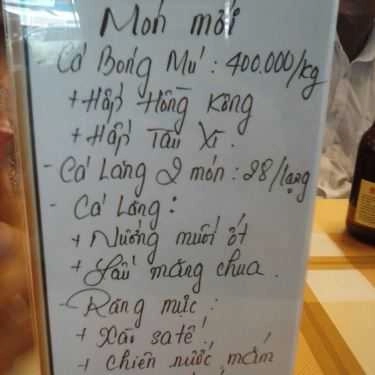 Món mới
- Cá Bóng Mú : 400.000/kg
+ Hấp Hồng Kông
+ Hấp Tàu Xì.
- Cá Lăng 2 món : 28/lạng
- Cá Lăng :
+ Nướng muối ớt
+ Lẩu măng chua.
- Răng mực :
+ Xào saté.
+ Chiên nước mắm